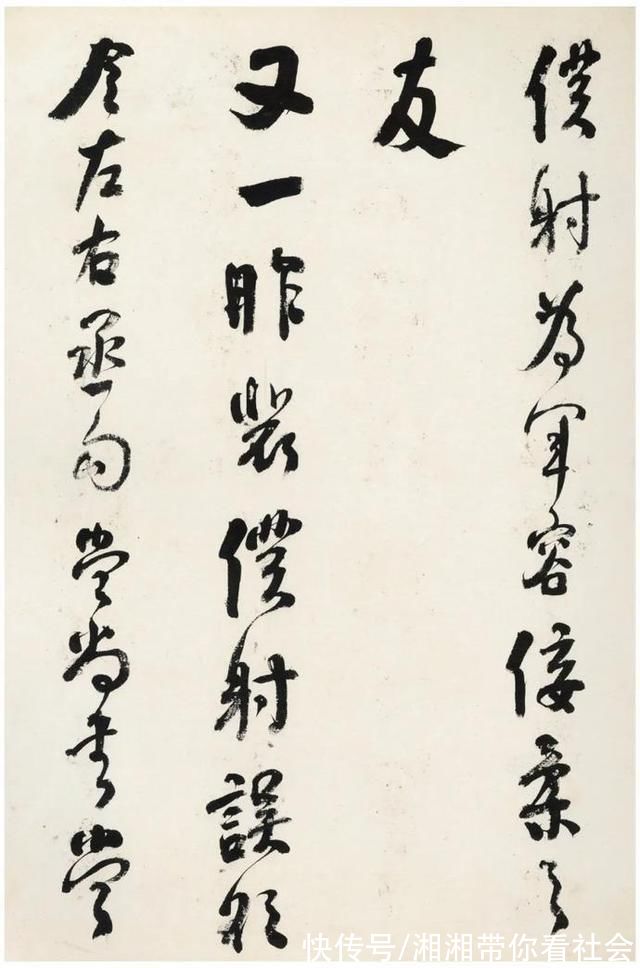 僕射為軍容佞柔之
友
又一昨裴僕射誤欲
令左右丞勾當尚書當
快传号/湘湘带你看社会